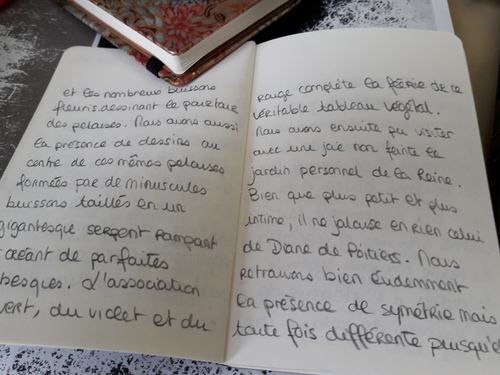 et les nombreux buissons
fleuris dessinant le pourtour
des pelouses. Nous avons aussi
la présence de dessins au
centre de ces mêmes pelouses
formées par de minuscules
buissons taillés en un
gigantesque serpent rampant
créant de parfaites
besques. L'association
vert, du violet et du
rouge complète la féérie de ce
véritable tableau végétal.
Nous avons ensuite pu visiter
avec une joie non feinte le
jardin personnel de la Reine.
Bien que plus petit et plus
intime, il ne jalouse en rien celui
de Diane de Poitiers. Nous
retrouvons bien évidemment
la présence de symétrie mais
toute fois différente puisqu'el